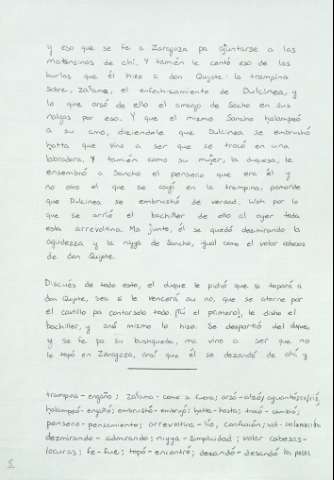 y eso que se fe a Zaragoza pa ajuntarse a las
matanzinas de ahí. Y tamién le contó eso de las
burlas que él hizo a don Quijote: la trampina
sobre, zafame, el enfechizamiento de Dulcinea, y
lo que orsó de ello el amargo de Sancho en sus
nalgas por eso. Y que el mismo Sancho halampeó
a su amo, diziendole que Dulcinea se embrushó
hatta que vino a ser que se tracó en una
labradora. Y tamién como su mujer, la duquesa, le
ensembró a Sancho el penserio que era él y
no otro el que se cayó en la trampina, pamorde
Dulcinea se embrushó de verdad. Wah por lo
que se arrió el bachiller de ello al ojear toda
esta arrevolina. Ma junto, él se quedó dezmirando la
agudezza y la niyya de Sancho, igual como el valor cabesas
de don Quijote.
Discués de todo esto, el duque le pidió que si topará a
don Quijote, sea si le vencerá au no, que se atorne por
el castillo pa contarselo todo (tú el primero), le disho el
bachiller, y ansí mismo lo hizo. Se despartió del duque,
y se fe pa su bushqueda, ma vino a ser que no
le topó en Zaragoza, ansí que él se dezandó de ahí y
trampina - engaño; zafame - come si fuera; orsó - alzó, aguantó, sufrió;
halampeó - engañó; embrushtó - embrujó; hatta - hasta; tracó - cambió;
penserio - pensamiento; arrevoltina - lío, confusión;
dezmirando - admirando; niyya - simplicidad; valor cabesas -
locuras; fe - fue; topó - encontró; dezandó - desandó los pasos
5